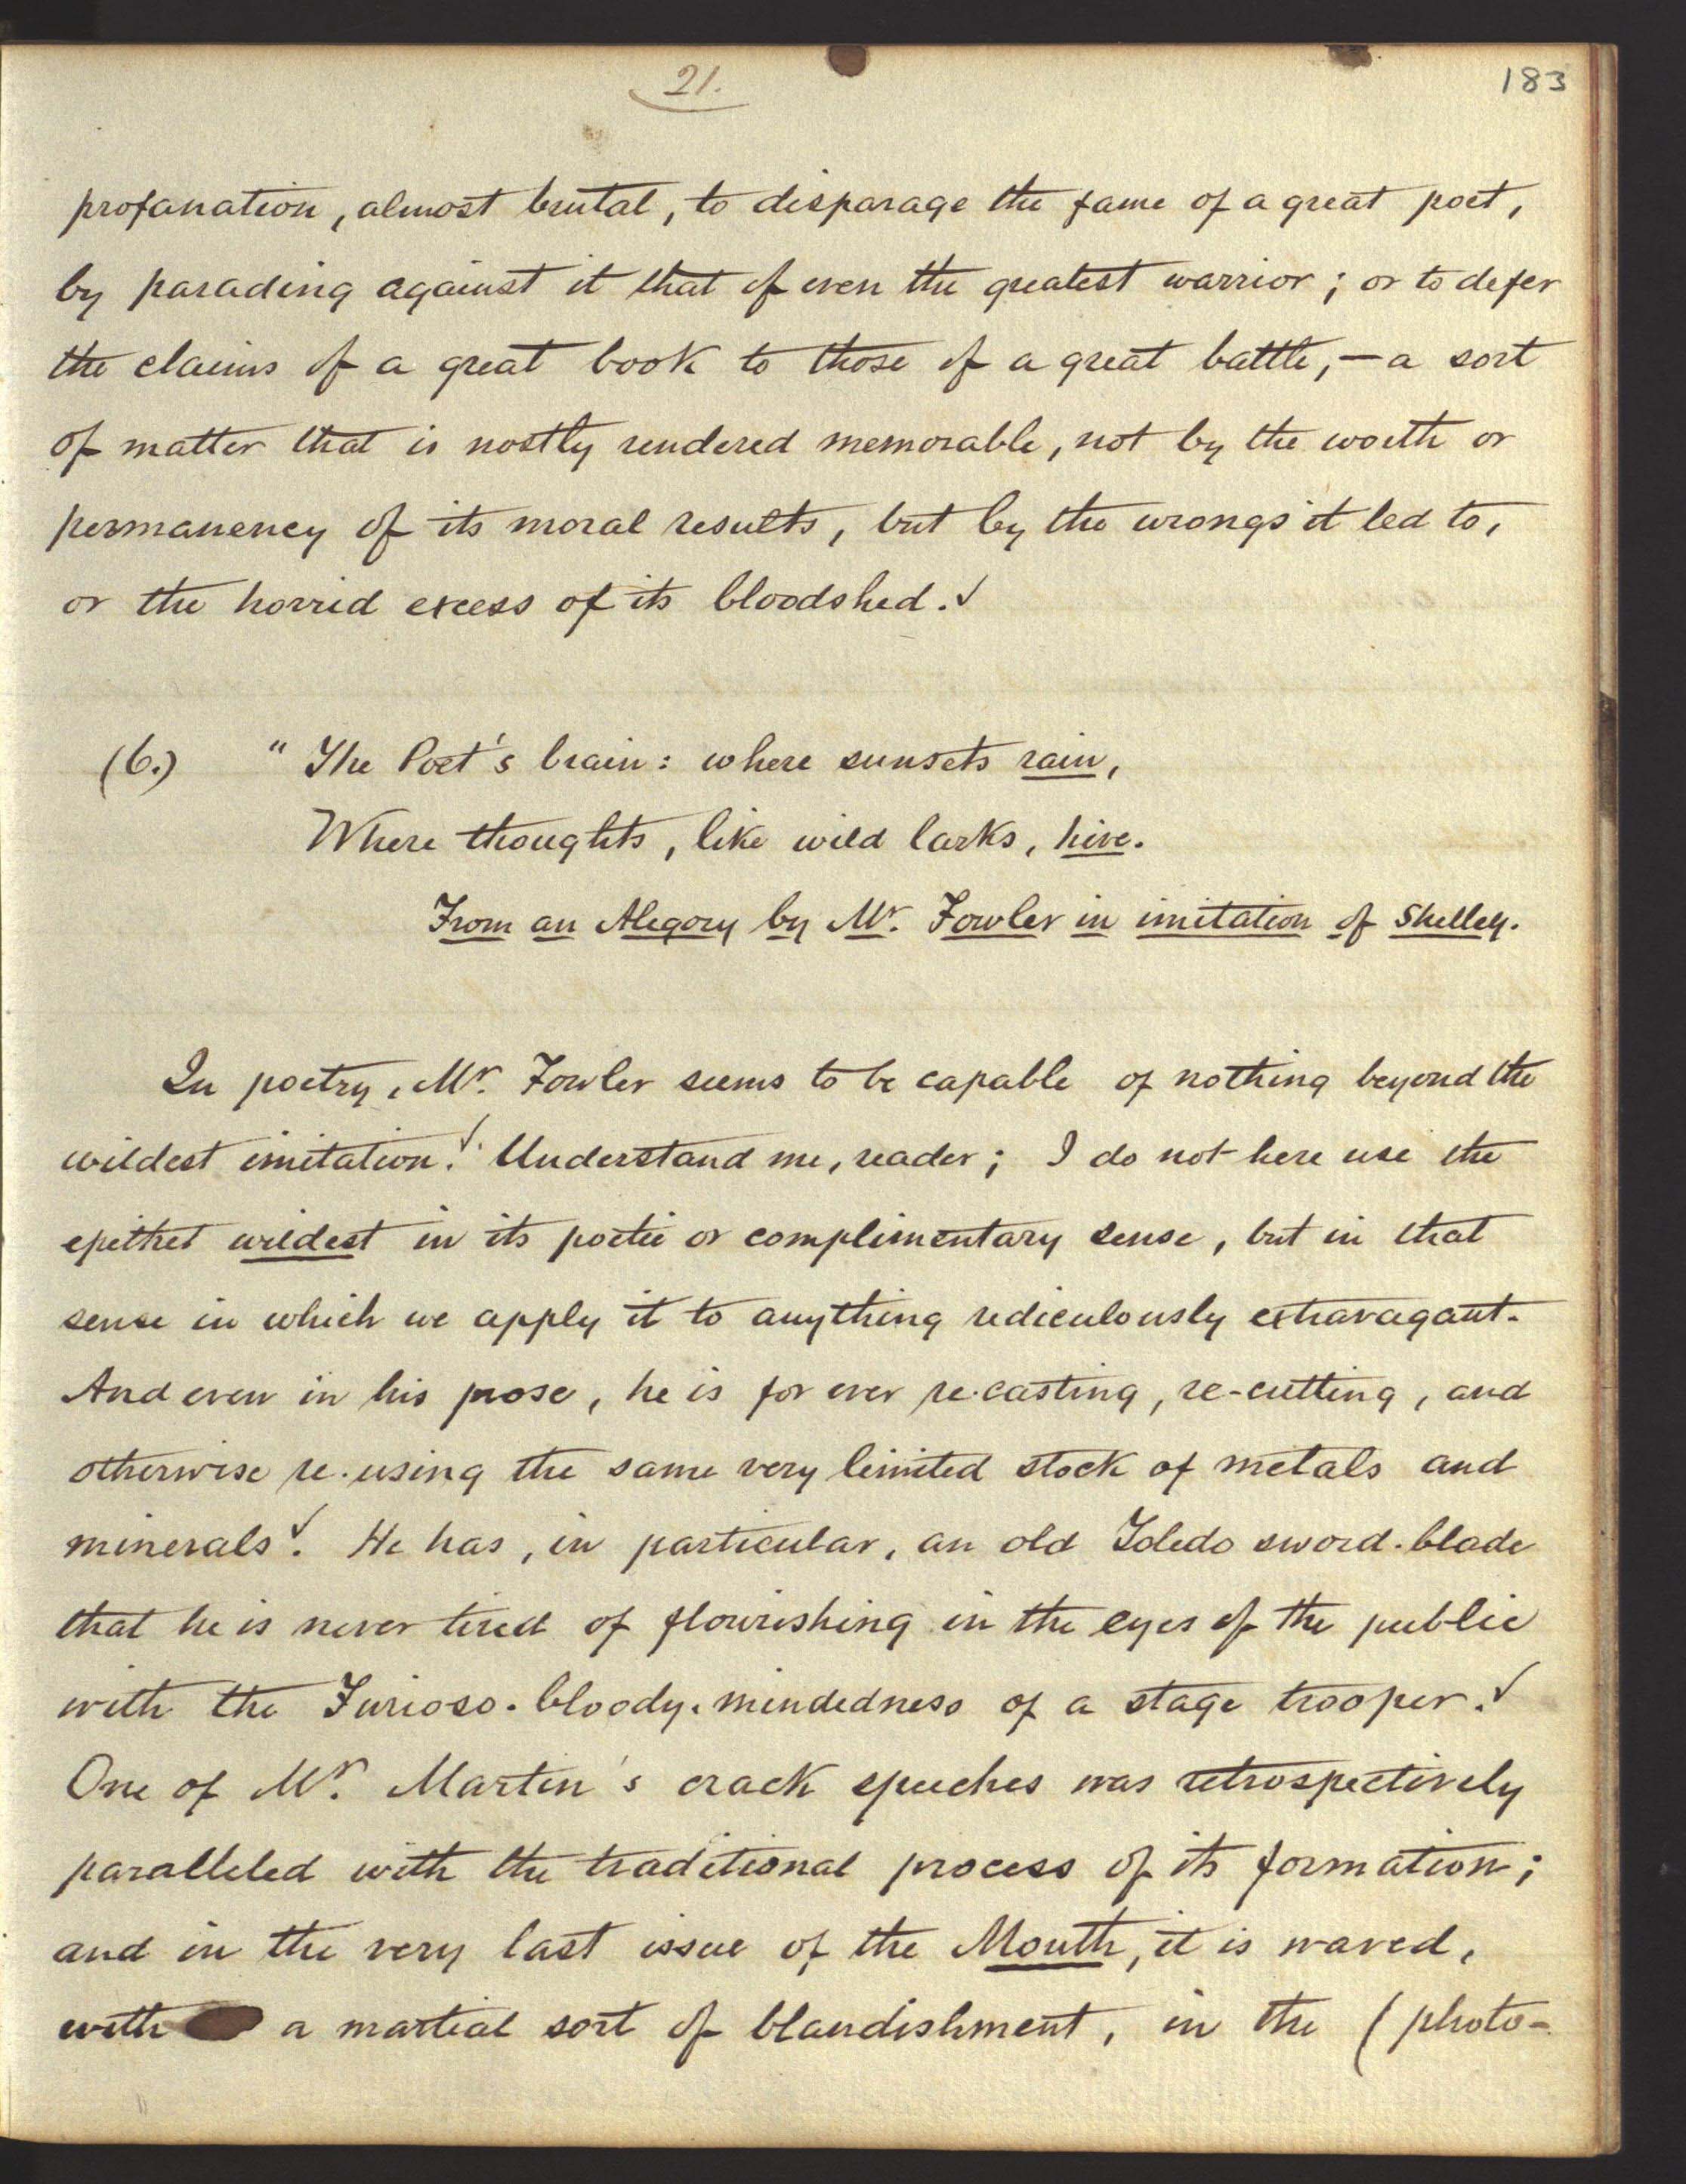 21.
183
profanation, almost brutal, to disparage the fame of a great poet,
by parading against it that of even the greatest warrior; or to defer
the claims of a great book to those of a great battle,—a sort
of matter that is mostly rendered memorable, not by the worth or
permanency of its moral results, but by the wrongs it led to,
or the horrid excess of its bloodshed.✓
(6.) "The Poet's brain: where sunsets rain,
Where thoughts, like wild larks, hive.
From an Alegory by Mr. Fowler in imitation of Shelley.
In poetry, Mr. Fowler seems to be capable of nothing beyond the
wildest imitation.✓ Understand me, reader; I do not here use the
epithet wildest in its poetic or complimentary sense, but in that
sense in which we apply it to anything rediculously extravagant.
And even in his prose, he is for ever re-casting, re-cutting, and
otherwise re-using the same very limited stock of metals and
minerals✓. He has, in particular, an old Toledo sword-blade
that he is never tired of flourishing in the eyes of the public
with the Furioso-bloody-mindedness of a stage trooper.✓
One of Mr. Martin's crack speeches was retrospectively
paralleled with the traditional process of its formation;
and in the very last issue of the Month, it is waved,
with a martial sort of blandishment, in the (photo-